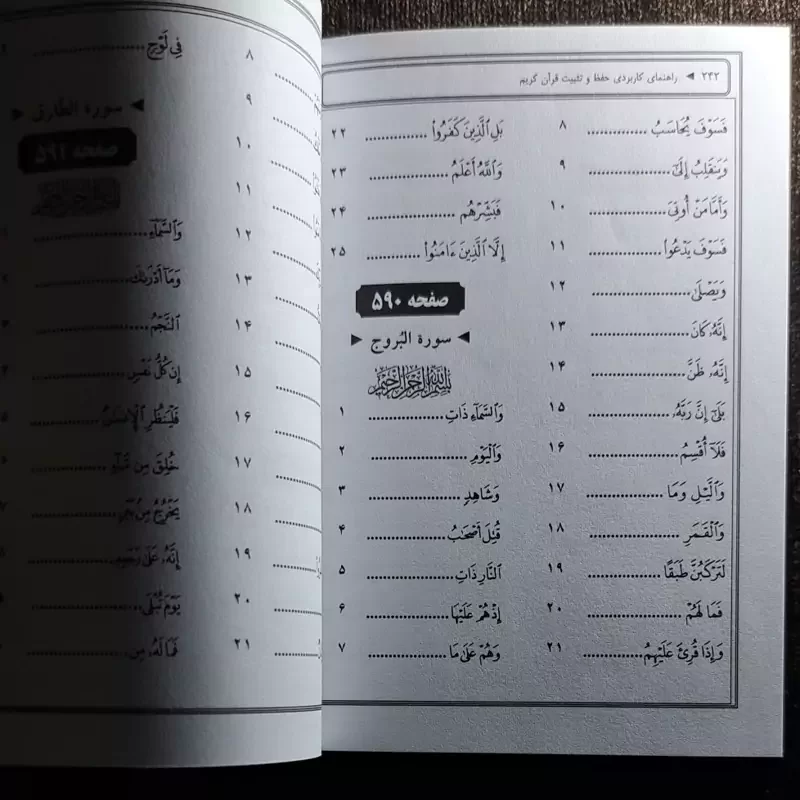 ۲۴۲ ◄ راهنمای کاربردی حفظ و تثبیت قرآن کریم
فَسَوۡفَ يُحَاسَبُ .............. ۸
وَيَنقَلِبُ إِلَىٰٓ .................... ۹
وَأَمَّا مَنۡ أُوتِيَ ................... ۱۰
فَسَوۡفَ يَدۡعُواْ ................. ۱۱
وَيَصۡلَىٰ ......................... ۱۲
إِنَّهُۥ كَانَ ........................ ۱۳
إِنَّهُۥ ظَنَّ ......................... ۱۴
بَلَىٰٓ إِنَّ رَبَّهُۥ .................... ۱۵
فَلَآ أُقۡسِمُ ...................... ۱۶
وَٱلَّيۡلِ وَمَا ................... ۱۷
وَٱلۡقَمَرِ ....................... ۱۸
لَتَرۡكَبُنَّ طَبَقًا ................. ۱۹
فَمَا لَهُمۡ ....................... ۲۰
وَإِذَا قُرِئَ عَلَيۡهِمُ .............. ۲۱
بَلِ ٱلَّذِينَ كَفَرُواْ .............. ۲۲
وَٱللَّهُ أَعۡلَمُ .................. ۲۳
فَبَشِّرۡهُم ..................... ۲۴
إِلَّا ٱلَّذِينَ ءَامَنُواْ ............. ۲۵
صفحه ۵۹۰
◄ سورة البُروج ►
بسم الله الرحمن الرحيم
وَٱلسَّمَآءِ ذَاتِ .................. ۱
وَٱلۡيَوۡمِ ....................... ۲
وَشَاهِدٖ ....................... ۳
قُتِلَ أَصۡحَٰبُ ................... ۴
ٱلنَّارِ ذَاتِ ..................... ۵
إِذۡ هُمۡ عَلَيۡهَا .................. ۶
وَهُمۡ عَلَىٰ مَا ................... ۷
۸
۹
۱۰
۱۱
۱۲
۱۳
۱۴
۱۵
۱۶
۱۷
۱۸
۱۹
۲۰
۲۱
فِي لَوۡحٖ ....................
◄ سورة الطّارق ►
صفحه ۵۹۱
وَٱلسَّمَآءِ ....................
وَمَآ أَدۡرَىٰكَ ..................
ٱلنَّجۡمُ ....................
إِن كُلُّ نَفۡسٖ ..................
فَلۡيَنظُرِ ٱلۡإِنسَٰنُ ..............
خُلِقَ مِن مَّآءٖ .................
يَخۡرُجُ مِنۢ بَيۡنِ ................
إِنَّهُۥ عَلَىٰ رَجۡعِهِۦ ...............
يَوۡمَ تُبۡلَى ....................
فَمَا لَهُۥ مِن ..................